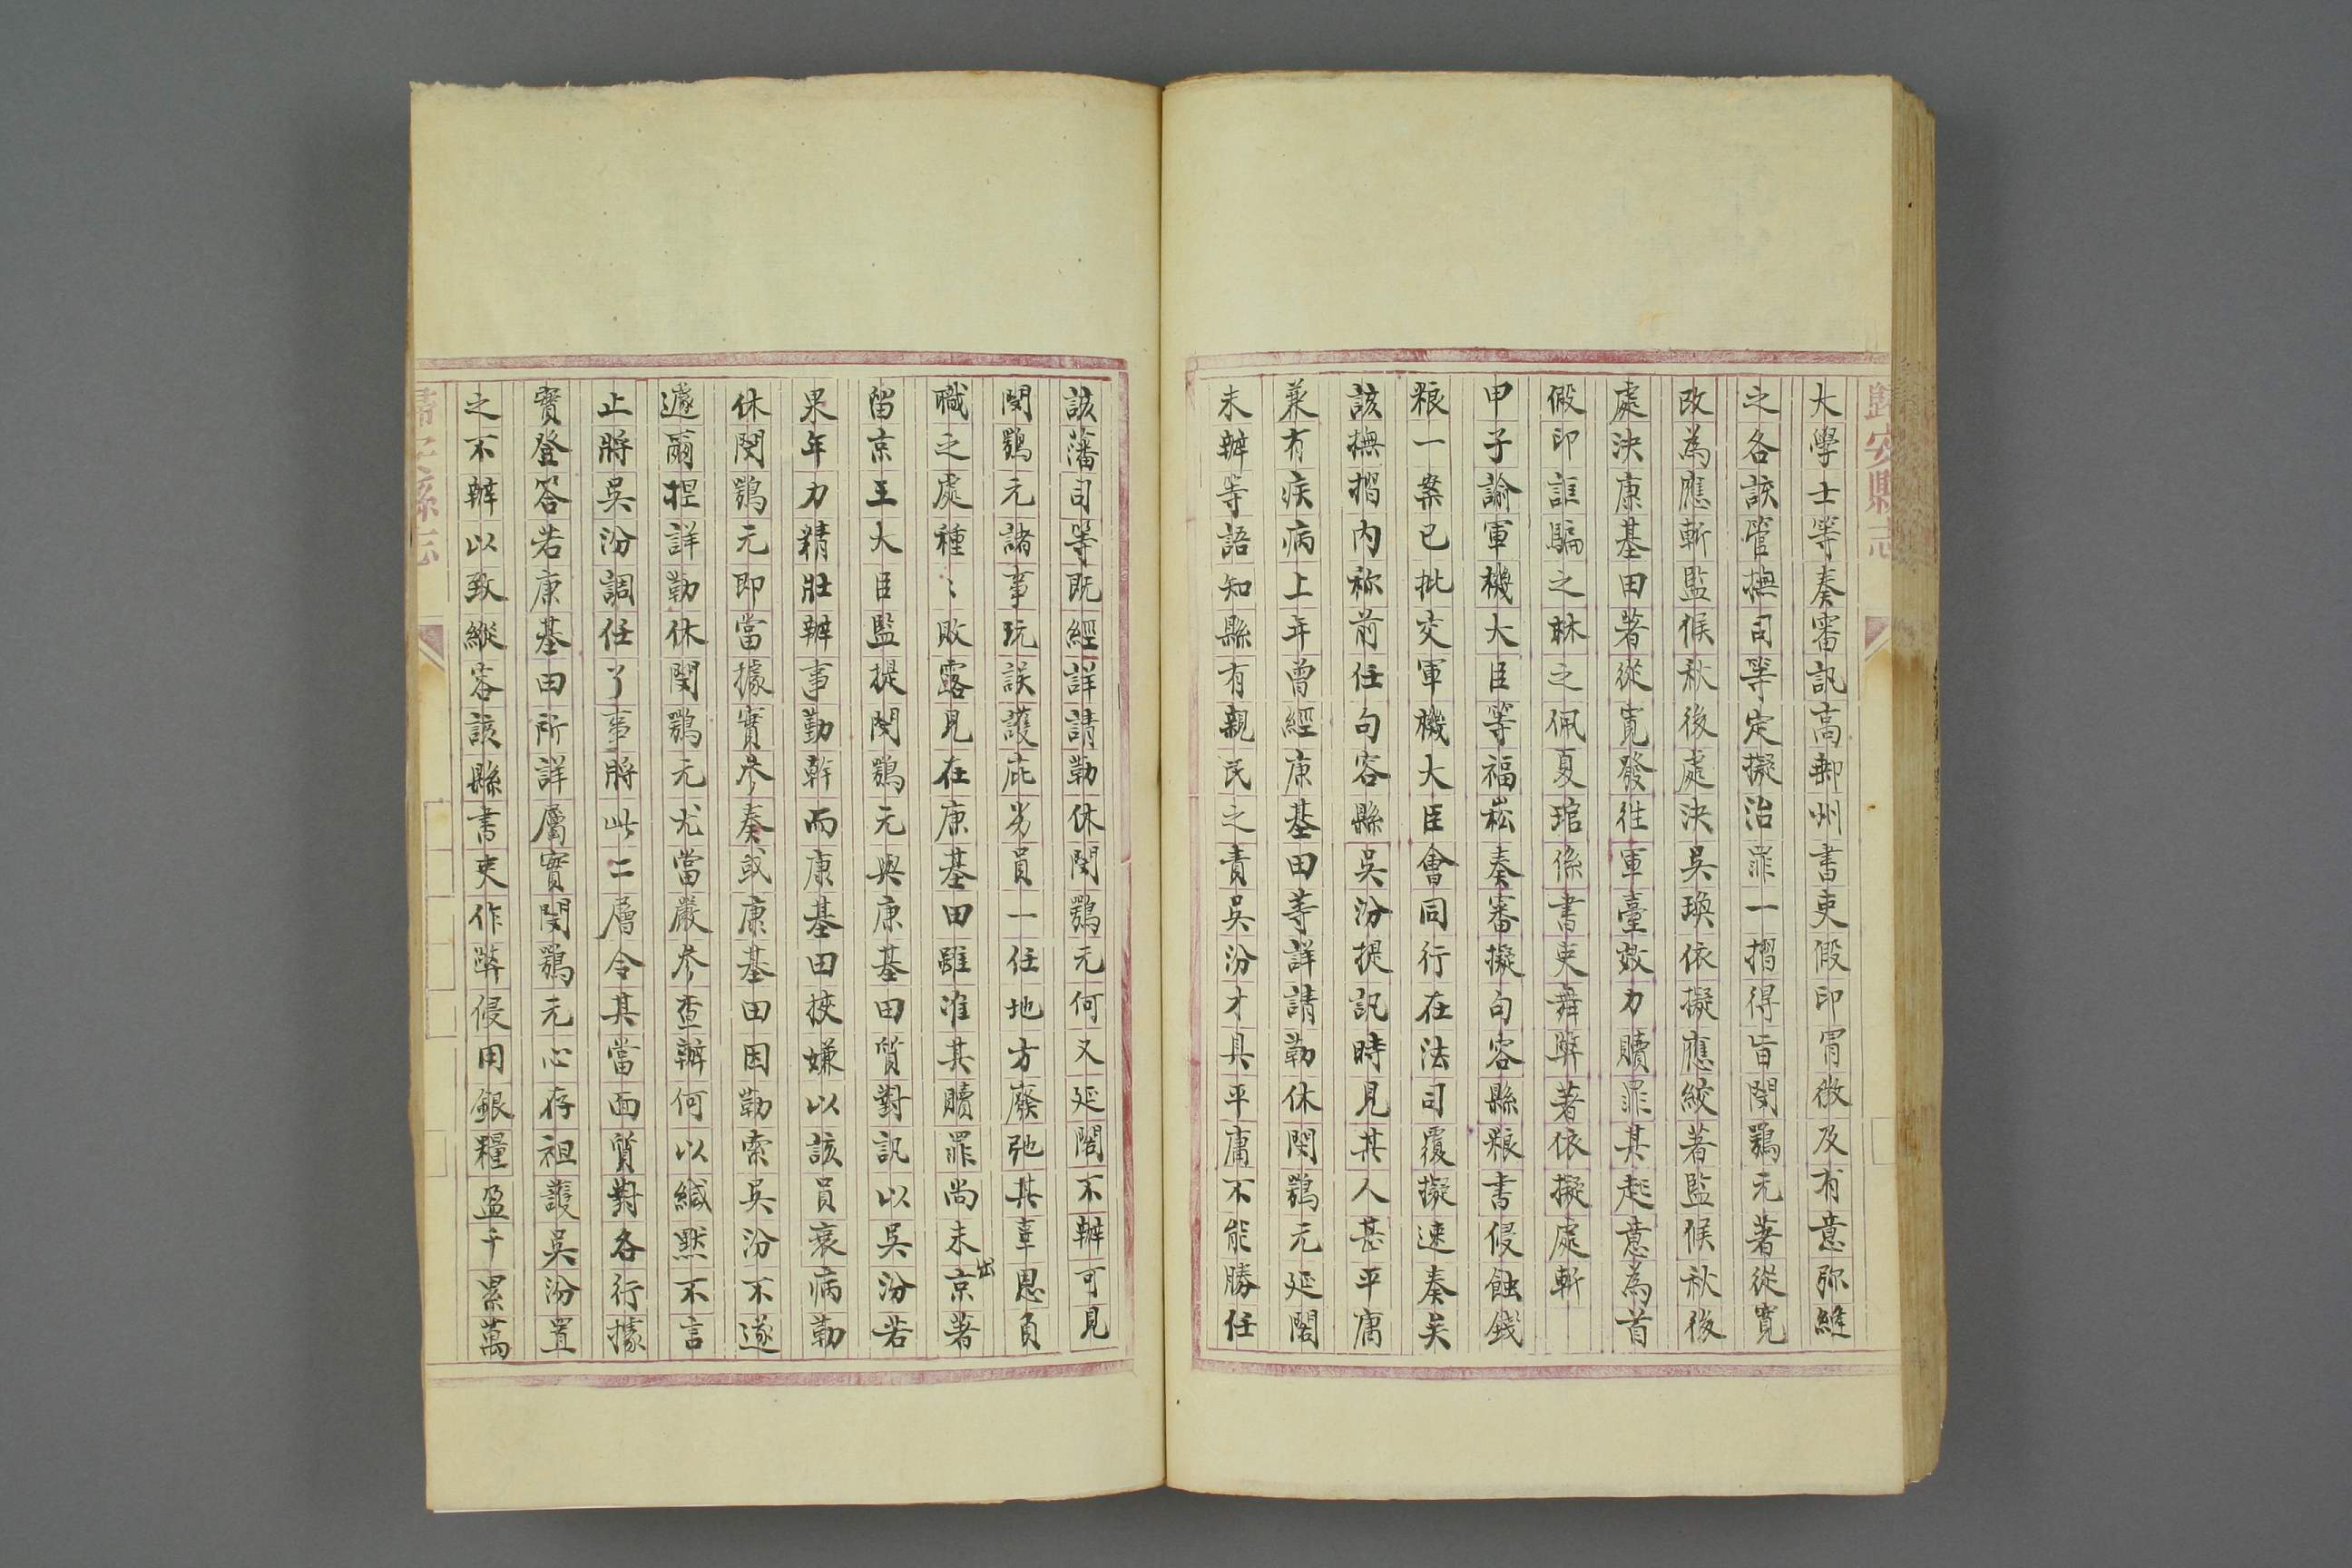 歸安縣志
大學士等奏審訊高郵州書吏假印冒徵及有意弥縫
之各該管撫司等定擬治罪一摺得旨閔鶚元著從寬
改為應斬監候秋後處決吳瑍依擬應絞著監候秋後
處決康基田著從寬發往軍臺效力贖罪其起意為首
假印誆騙之林之佩夏琯係書吏舞弊著依擬處斬
甲子諭軍機大臣等福崧奏審擬句容縣粮書侵蝕錢
粮一案已批交軍機大臣會同行在法司覆擬速奏矣
該撫摺内称前任句容縣吳汾提訊時見其人甚平庸
兼有疾病上年曾經康基田等詳請勒休閔鶚元延閣
未辦等語知縣有親民之責吳汾才具平庸不能勝任
該藩司等既經詳請勒休閔鶚元何又延閣不辦可見
閔鶚元諸事玩誤護庇劣員一任地方廢弛其辜恩負
職之處種〻敗露見在康基田雖准其贖罪尚未出京著
留京王大臣監提閔鶚元與康基田質對訊以吳汾若
果年力精壯辦事勤幹而康基田挾嫌以該員衰病勒
休閔鶚元即當據實參奏或康基田因勒索吳汾不遂
遽爾捏詳勒休閔鶚元尤當嚴參查辦何以緘默不言
止將吳汾調任了事將此二層令其當面質對各行據
實登答若康基田所詳屬實閔鶚元心存袒護吳汾置
之不辦以致縱容該縣書吏作弊侵用銀糧盈千累萬
歸安縣志